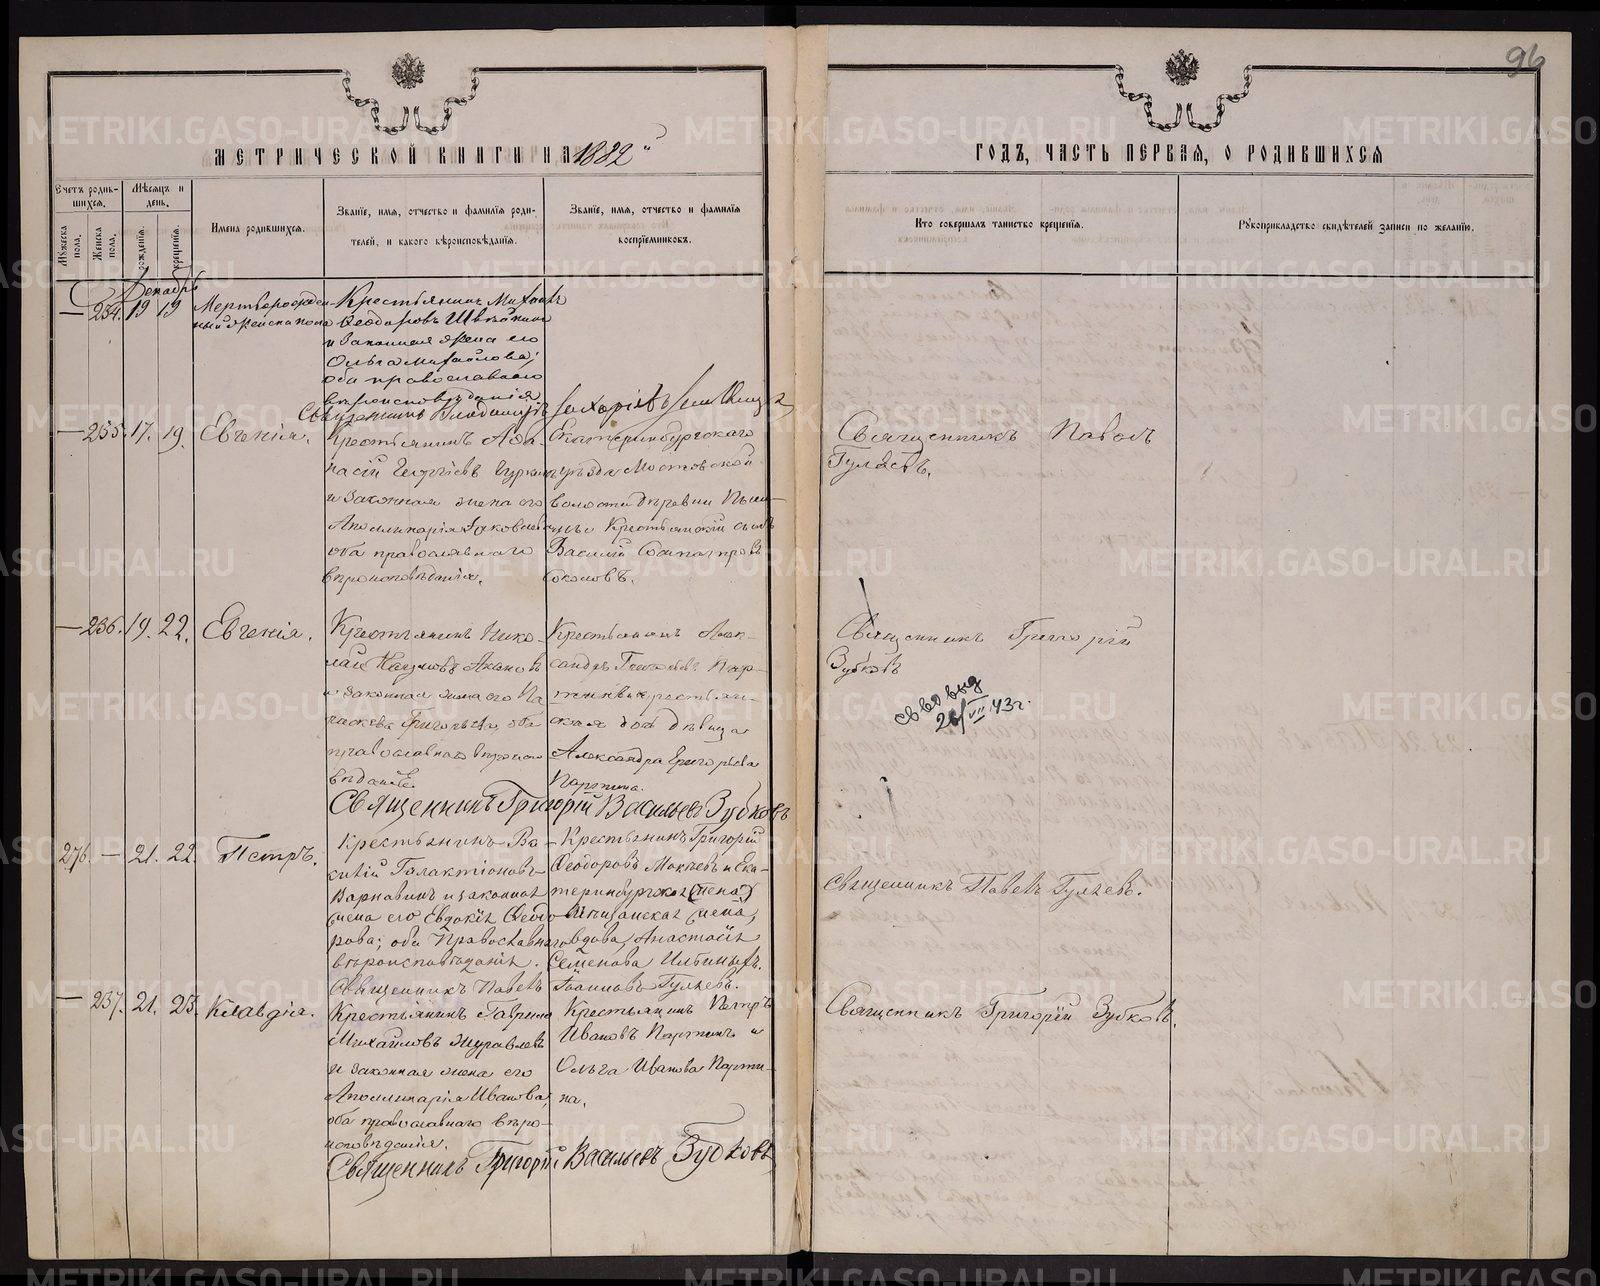 96
МЕТРИЧЕСКОЙ КНИГИ НА 1882
ГОДЪ, ЧАСТЬ ПЕРВАЯ, О РОДИВШИХСЯ
Счетъ роди-
вшихся.
Мѣсяцъ и
день.
Мужеска
пола.
Женска
пола.
рожденія.
крещенія.
Имена родившихся.
Званіе, имя, отчество и фамилія роди-
телей, и какого вѣроисповѣданія.
Званіе, имя, отчество и фамилія
воспріемниковъ.
Кто совершалъ таинство крещенія.
Рукоприкладство свидѣтелей записи по желанію.
Декабрь
— 234. 19 19
Мертворожден-
ный женска пола
Крестьянинъ Михаилъ
Ѳеодоровъ
и Законная жена его
Ольга Михайлова;
оба православнаго
вѣроисповѣданія
Священникъ Владимиръ
— 235. 17. 19. Евгенія.
Крестьянинъ Афа-
насій Георгіевъ
и законная жена его
Аполлинарія Яковлева
оба православнаго
вѣроисповѣданія.
Екатеринбургскаго
уѣзда Мостовской
волости деревни
Крестьянскій сынъ
Василій
Соколовъ.
Священникъ Павелъ
Гуляевъ.
— 236. 19. 22. Евгенія.
Крестьянинъ Нико-
лай Наумовъ
и законная жена его Па-
раскева Григорьева, оба
православнаго вѣроиспо
вѣданіе.
Крестьянинъ Алек-
сандръ
и крестьян-
ская дочь дѣвица
Александра Григорьева
Паргина.
Священникъ Григорій
Зубковъ
св во выд
26/VII 43 г.
Священникъ Григорій Васильевъ Зубковъ
276. — 21. 22. Петръ.
Крестьянинъ Ва-
силій Галактіоновъ
Варнавинъ и законная
жена его Евдокія Ѳеодо-
рова; оба Православнаго
вѣроисповѣданія.
Крестьянинъ Григорій
Ѳеодоровъ Мокѣевъ и Ека-
теринбургская (жена)
Мѣщанская жена,
вдова, Анастасія
Семенова Ильиныхъ.
Священникъ Павелъ Гуляевъ.
Священникъ Павелъ Іоанновъ Гуляевъ.
— 237. 21. 23. Клавдія.
Крестьянинъ Гаврило
Михайловъ Журавлевъ
и законная жена его
Аполлинарія Иванова,
оба православнаго вѣро-
исповѣданія.
Крестьянинъ Петръ
Ивановъ Паргинъ и
Ольга Иванова Парги-
на.
Священникъ Григорій Зубковъ.
Священникъ Григорій Васильевъ Зубковъ
METRIKI.GASO-URAL.RU